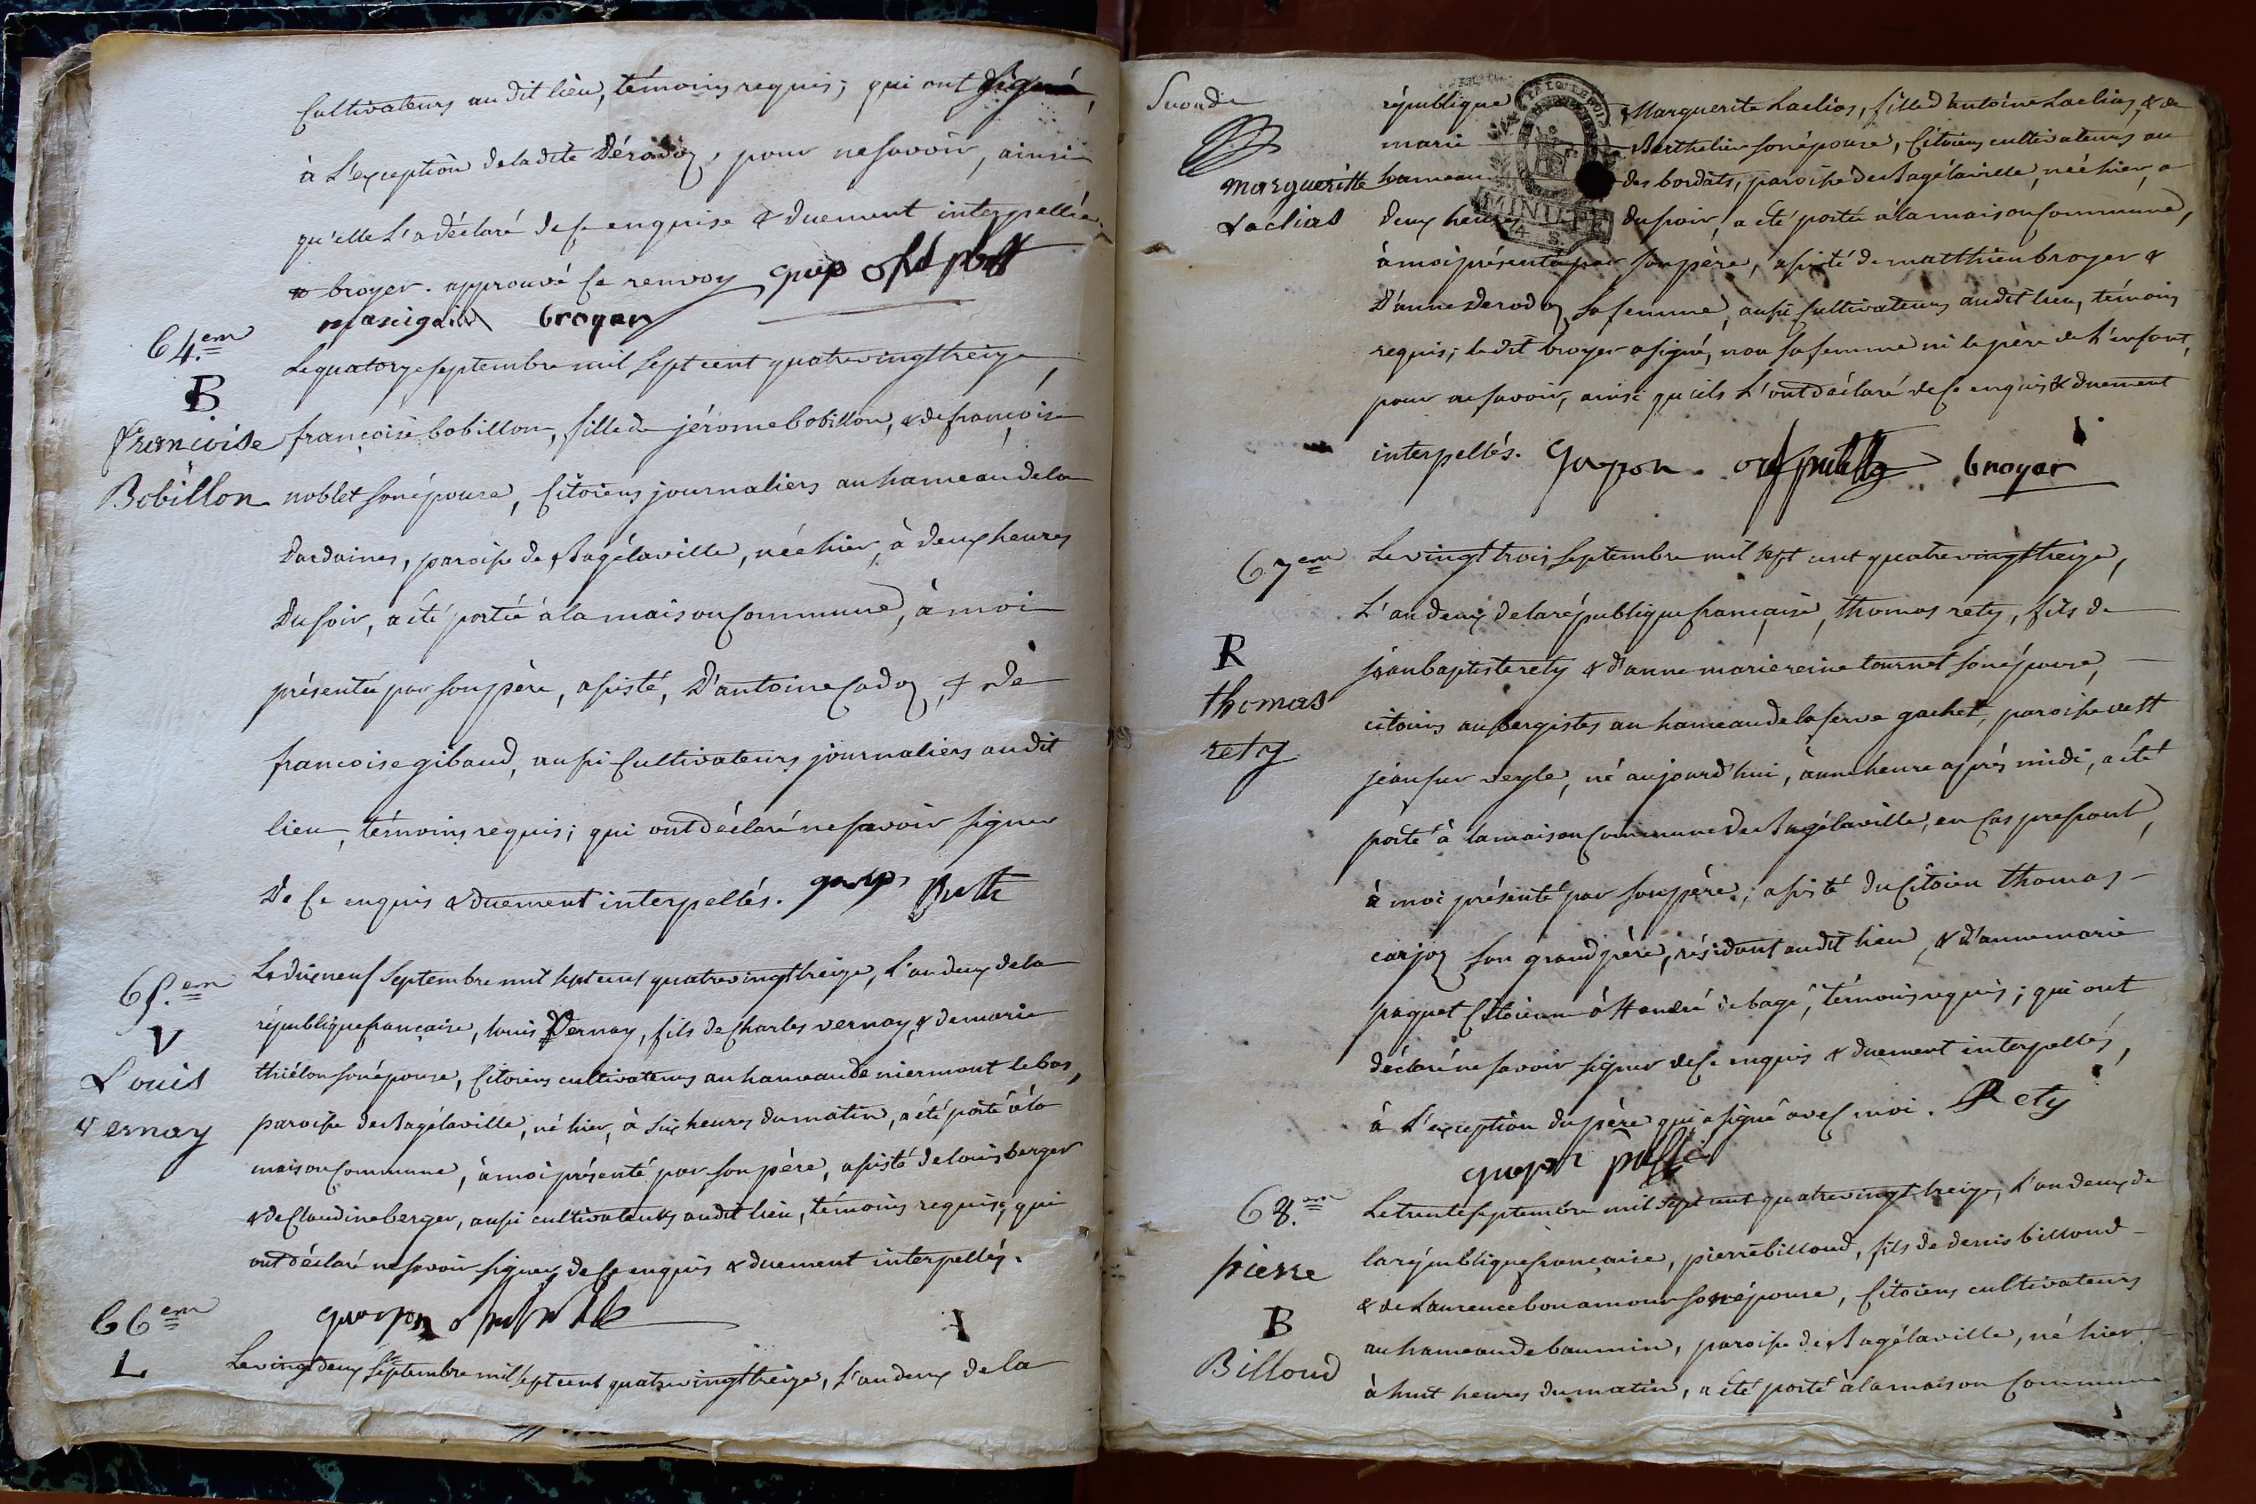 Cultivateurs audit lieu, témoins requis; qui ont signé,
à L'exception de ladite Dérodoz, pour ne savoir, ainsi
qu'elle L'a déclaré de ce enquise & duement interpellée
& broyer. approuvé ce renvoy
broyer
64.em
B
françoise
Bobillon
Le quatorze septembre mil sept cent quatrevingttreize,
françoise bobillon, fille de jérome bobillon, & de françoise
noblet son épouse, Citoiens journaliers au hameau de la
Dardaines, paroisse de Bagélaville, née hier, à deux heures
Du soir, a été portée à la maison Commune, à moi
présentée par son père, assisté, D'antoine Cadoz, & De
francoise gibaud, aussi Cultivateurs journaliers audit
lieu, témoins requis; qui ont déclaré ne savoir signer
De Ce enquis & duement interpellés.
65.em
V
Louis
vernay
Le dixneuf Septembre mil sept cent quatrevingttreize, L'an deux de la
république française, louis Vernay, fils de Charles vernay, & de marie
thiélon son épouse, Citoiens cultivateurs au hameau de niermont le bas,
paroisse de Bagélaville, né hier, à six heures du matin, a été porté à la
maison Commune, à moi présenté par son père, assisté de louis berger
& de Claudine berger, aussi cultivateurs audit lieu, témoins requis; qui
ont déclaré ne savoir signer, de Ce enquis & duement interpellés.
66em
L
Le vingtdeux Septembre mil sept cent quatrevingttreize, L'an deux de la
Marguerite
Laclias
république Marguerite Laclias, fille d'antoine Laclias, & de
marie Berthelier son épouse, Citoiens cultivateurs au
hameau des bordats, paroisse de Bagélaville, née hier, a
deux heures du soir, a été portée à la maison Commune,
MINUTE
4 S.
à moi présentée par son père, assisté de matthieu broyer &
D'anne Derodoz sa femme, aussi Cultivateurs audit lieu, témoins
requis; le dit broyer a signé, non sa femme ni le père de L'enfant,
pour ne savoir, ainsi qu'ils L'ont déclaré de Ce enquis & duement
interpellés. broyer
67em
R
thomas
rety
Le vingttrois Septembre mil sept cent quatrevingttreize,
L'an deux de la république française, thomas réty, fils de
jean baptiste rety & d'anne marie reine tournet son épouse,
citoiens aubergistes au hameau de la serve gachet, paroisse de St
jean sur veyle, né aujourd'hui, à une heure après midi, a été
porté à la maison Commune de Bagélaville, en Cas pressant,
à moi présenté par son père; assisté du Citoien thomas
carjoz son grand père, résidant audit lieu, & d'anne marie
paquet Citoienne à St andré de bagé, témoins requis; qui ont
déclaré ne savoir signer de Ce enquis & duement interpellés,
à L'exception du père qui a signé avec moi. Rety
68.em
pierre
B
Billoud
Le trente septembre mil sept cent quatrevingt-treize, L'an deux de
la république française, pierre billoud, fils de denis billoud
& de Laurence bonamour son épouse, Citoiens cultivateurs
au hameau de baumin, paroisse de Bagélaville, né hier
à huit heures du matin, a été porté à la maison Commune